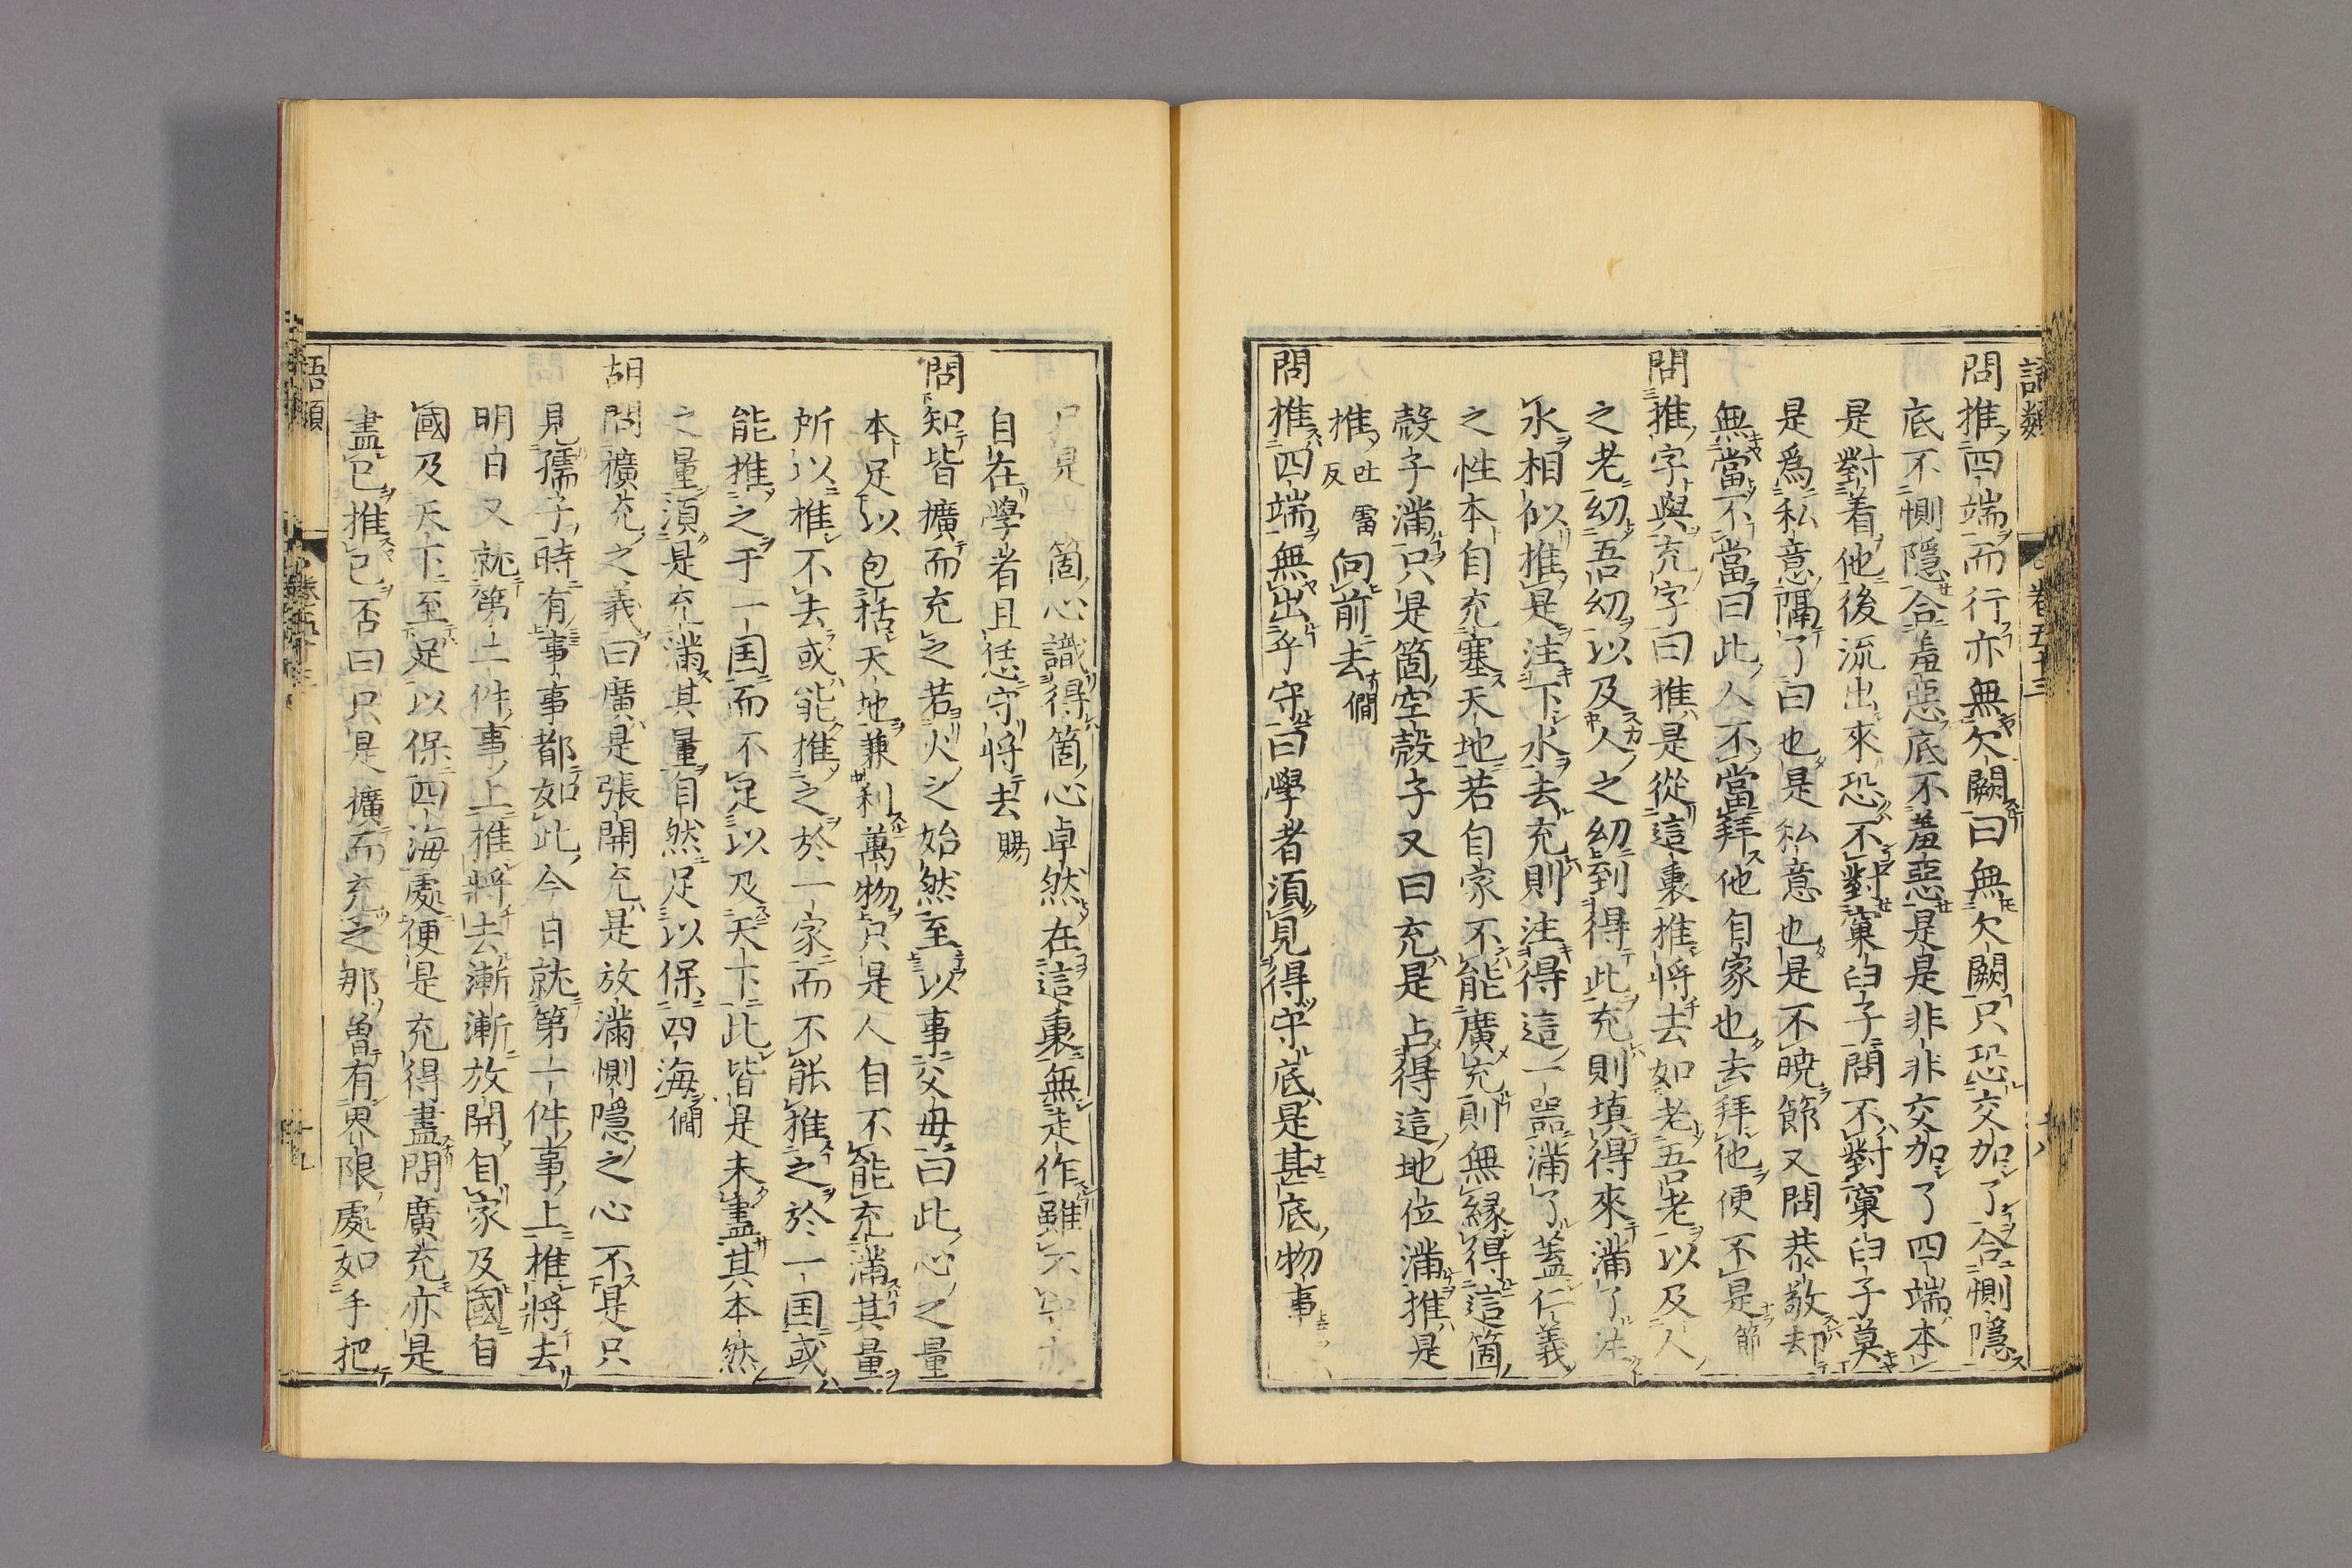 語類
卷五十三
十八
問推四端而行亦無欠闕曰無欠闕只恐交加了合惻隱
底不惻隱合羞惡底不羞惡是是非非交加了四端本
是對着他後流出來恐不對窠臼子問不對窠臼子莫
是爲私意隔了曰也是私意也是不曉節又問恭敬却
無當不當曰此人不當拜他自家也去拜他便不是節
問推字與充字曰推是從這裏推將去如老吾老以及人
之老幼吾幼以及人之幼到得此充則填得來滿了注
水相似推是注下水去充則注得這一器滿了蓋仁義
之性本自充塞天地若自家不能廣充則無緣得這箇
殼子滿只是箇空殼子又曰充是占得這地位滿推是
推吐雷反向前去僩
問推四端無出乎守曰學者須見得守底是甚底物事
只是一箇心識得箇心卓然在這裏無走作雖不守亦
自在學者且恁守將去賜
問知皆擴而充之若火之始然至以事父母曰此心之量
本足以包括天地兼利萬物只是人自不能充滿其量
所以推不去或能推之於一家而不能推之於一国或
能推之于一国而不足以及天下此皆是未盡其本然
之量須是充滿其量自然足以保四海僩
胡問擴充之義曰廣是張開充是放滿惻隱之心不是只
見孺子時有事事都如此今日就第一件事上推將去
明日又就第二件事上推將去漸漸放開自家及國自
國及天下至足以保四海處便是充得盡問廣充亦是
盡己推己否曰只是擴而充之那曾有界限處如手把
語類
十九